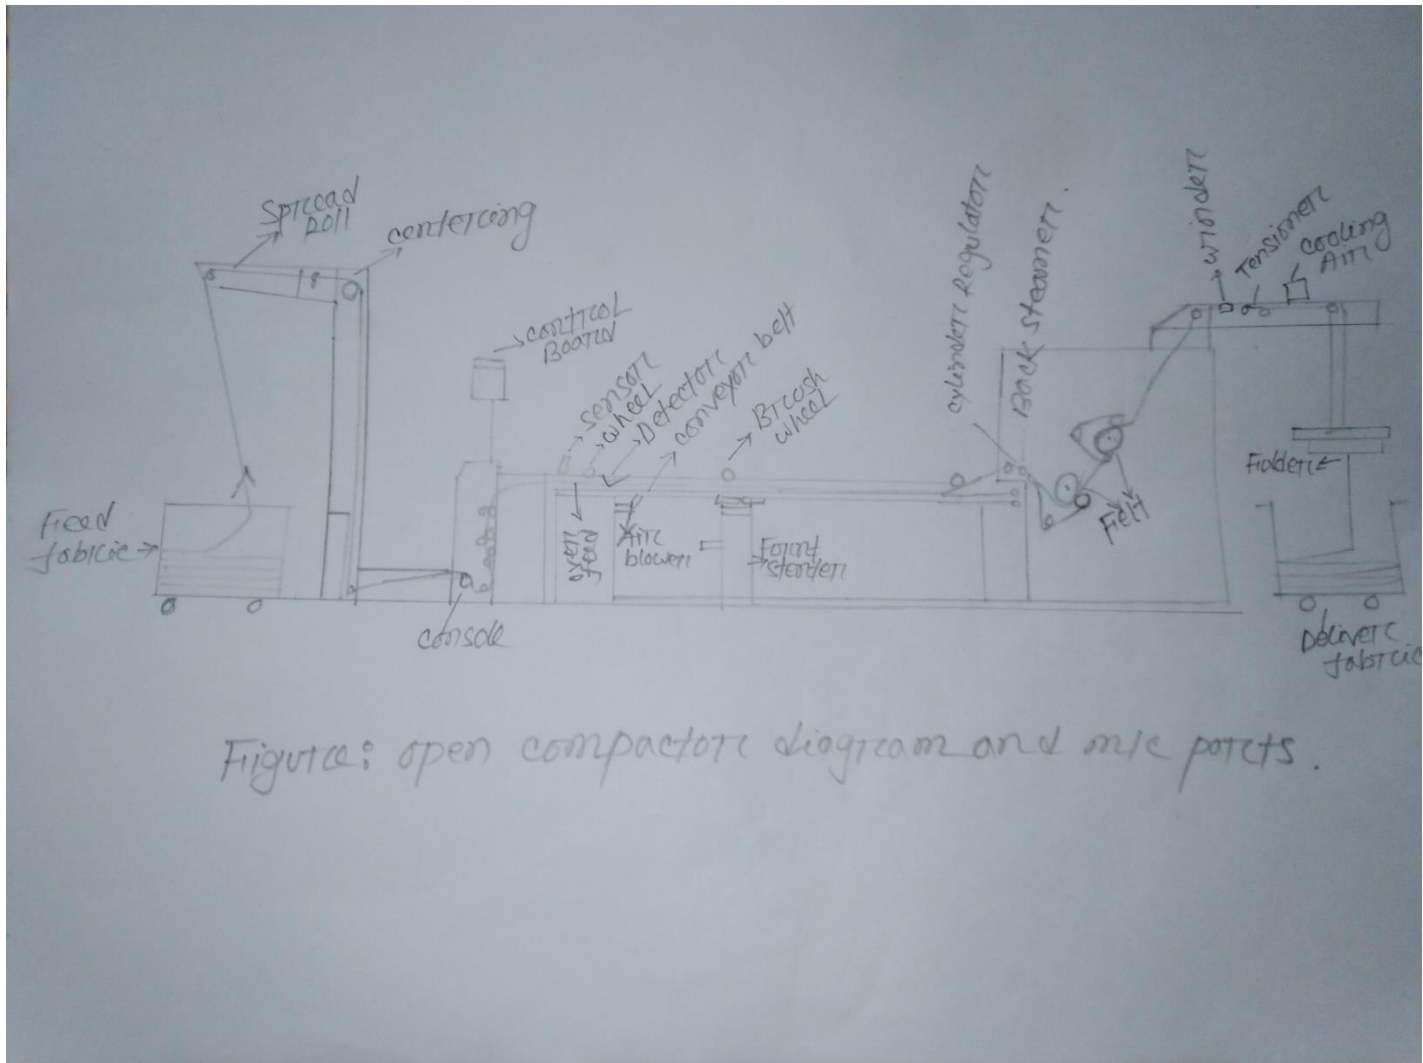 Spread
Roll
centering
control
Board
sensor
wheel
Detector
conveyor belt
Brush
wheel
cylinder Regulator
Back steamer.
winder
Tensioner
cooling
Air
Feed
fabric
over
feed
Air
blower
Felt
Folder
console
Deliver
fabric
Figure: open compactor diagram and m/c parts.